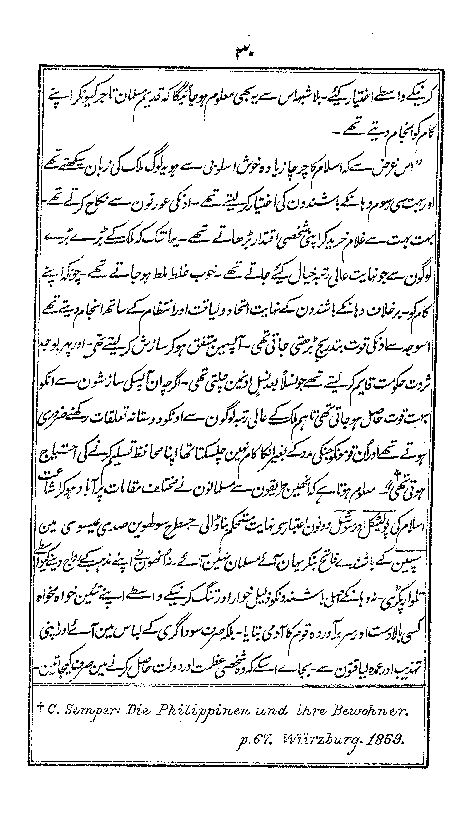 ۳۰
کرنیکے واسطے اختیار کیئے۔ بلاشبہ اس سے یہ بھی معلوم ہو جائیگا کہ قدیم مسلمان تاجر کیونکر اپنے
کام کو انجام دیتے تھے۔
"اس غرض سے کہ اسلام کا چرچا زیادہ خوش اسلوبی سے ہو یہ لوگ ملک کی زبان سیکھتے تھے
اور بہت سی رسوم وہانکے باشندون کی اختیار کر لیتے تھے۔ اونکی عورتون سے نکاح کرتے تھے۔
بہت بہت سے غلام خرید کر اپنی شخصی اقتدار بڑھاتے تھے۔ یہانتک کہ ملک کے بڑے بڑے
لوگون سے جو نہایت عالی رتبہ خیال کیئے جاتے تھے۔ خوب خلط ملط ہو جاتے تھے۔ چونکہ اپنے
کام کو۔ برخلاف وہانکے باشندون کے نہایت اتحاد و لیاقت اور انتظام کے ساتھ انجام دیتے تھے
اسوجہ سے اونکی قوت بتدریج بڑھتی جاتی تھی۔ آپسمین متفق ہو کر سازش کر لیتے تھی۔ اور پھر بوجہ
ثروت حکومت قایم کر لیتے تھے جو نسلاً بعد نسلٍ اونمین چلتی تھی۔ اگرچہ ان آپسکی سازشون سے انکو
بہت قوت حاصل ہو جاتی تھی تاہم ملک کے عالی رتبہ لوگون سے اونکو دوستانہ تعلقات رکھنے ضروری
ہوتے تھے اور اُن قومونکو جنکی مدد کے بغیر انکا کام نہین چلسکتا تھا اپنا محافظ تسلیم کرنے کی احتیاج
ہوتی تھی†۔ معلوم ہوتا ہے کہ انھین طریقون سے مسلمانون نے مختلف مقامات پر آباد ہو کر اشاعت
اسلام کی پولٹیکل و سوشل دونون اعتبار پر نہایت مستحکم بنا ڈالی۔ جسطرح سولھوین صدیٔ عیسوی مین
سپین کے باشندے فاتح بنکر یہان آئے مسلمان نہین آئے۔ نہ اُنھون نے اپنے مذہب کے رواج دینے کیواسطے
تلوار پکڑی۔ نہ وہانکے اہل باشندونکو ذلیل خوار اور تنگ کرنیکے واسطے اپنے تئین خواہ مخواہ
کسی بالادست اور سربرآوردہ قوم کا آدمی بنایا۔ بلکہ صرف سوداگری کے لباس مین آئے اور اپنی
تہذیب اور عمدہ لیاقتون سے۔ بجائے اسکے کہ وہ شخصی عظمت اور دولت حاصل کرنے مین صرف کیجاتین۔
† C. Semper: Die Philippinen und ihre Bewohner.
p. 67. Würzburg. 1869.